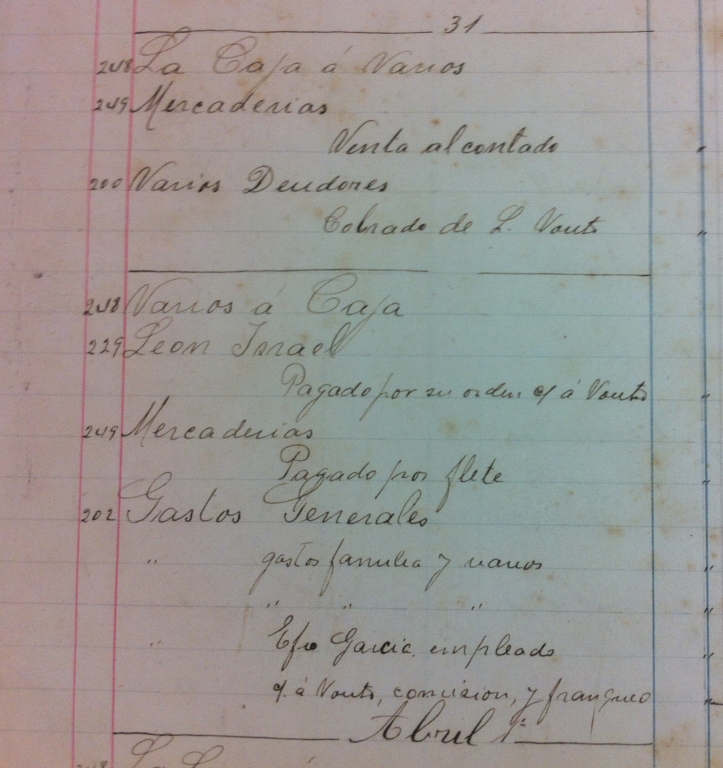 31
248 La Caja á Varios
249 Mercaderias
Venta al contado "
200 Varios Deudores
Cobrado de L. Vouto "
248 Varios á Caja
229 Leon Israel
Pagado por su orden c/ á Vouto "
249 Mercaderias
Pagado por flete "
202 Gastos Generales
" gastos familia y varios "
" " " "
" Efo Garcia empleado "
c/. á Vouto, comision, y franqueo "
Abril 1º
248 La